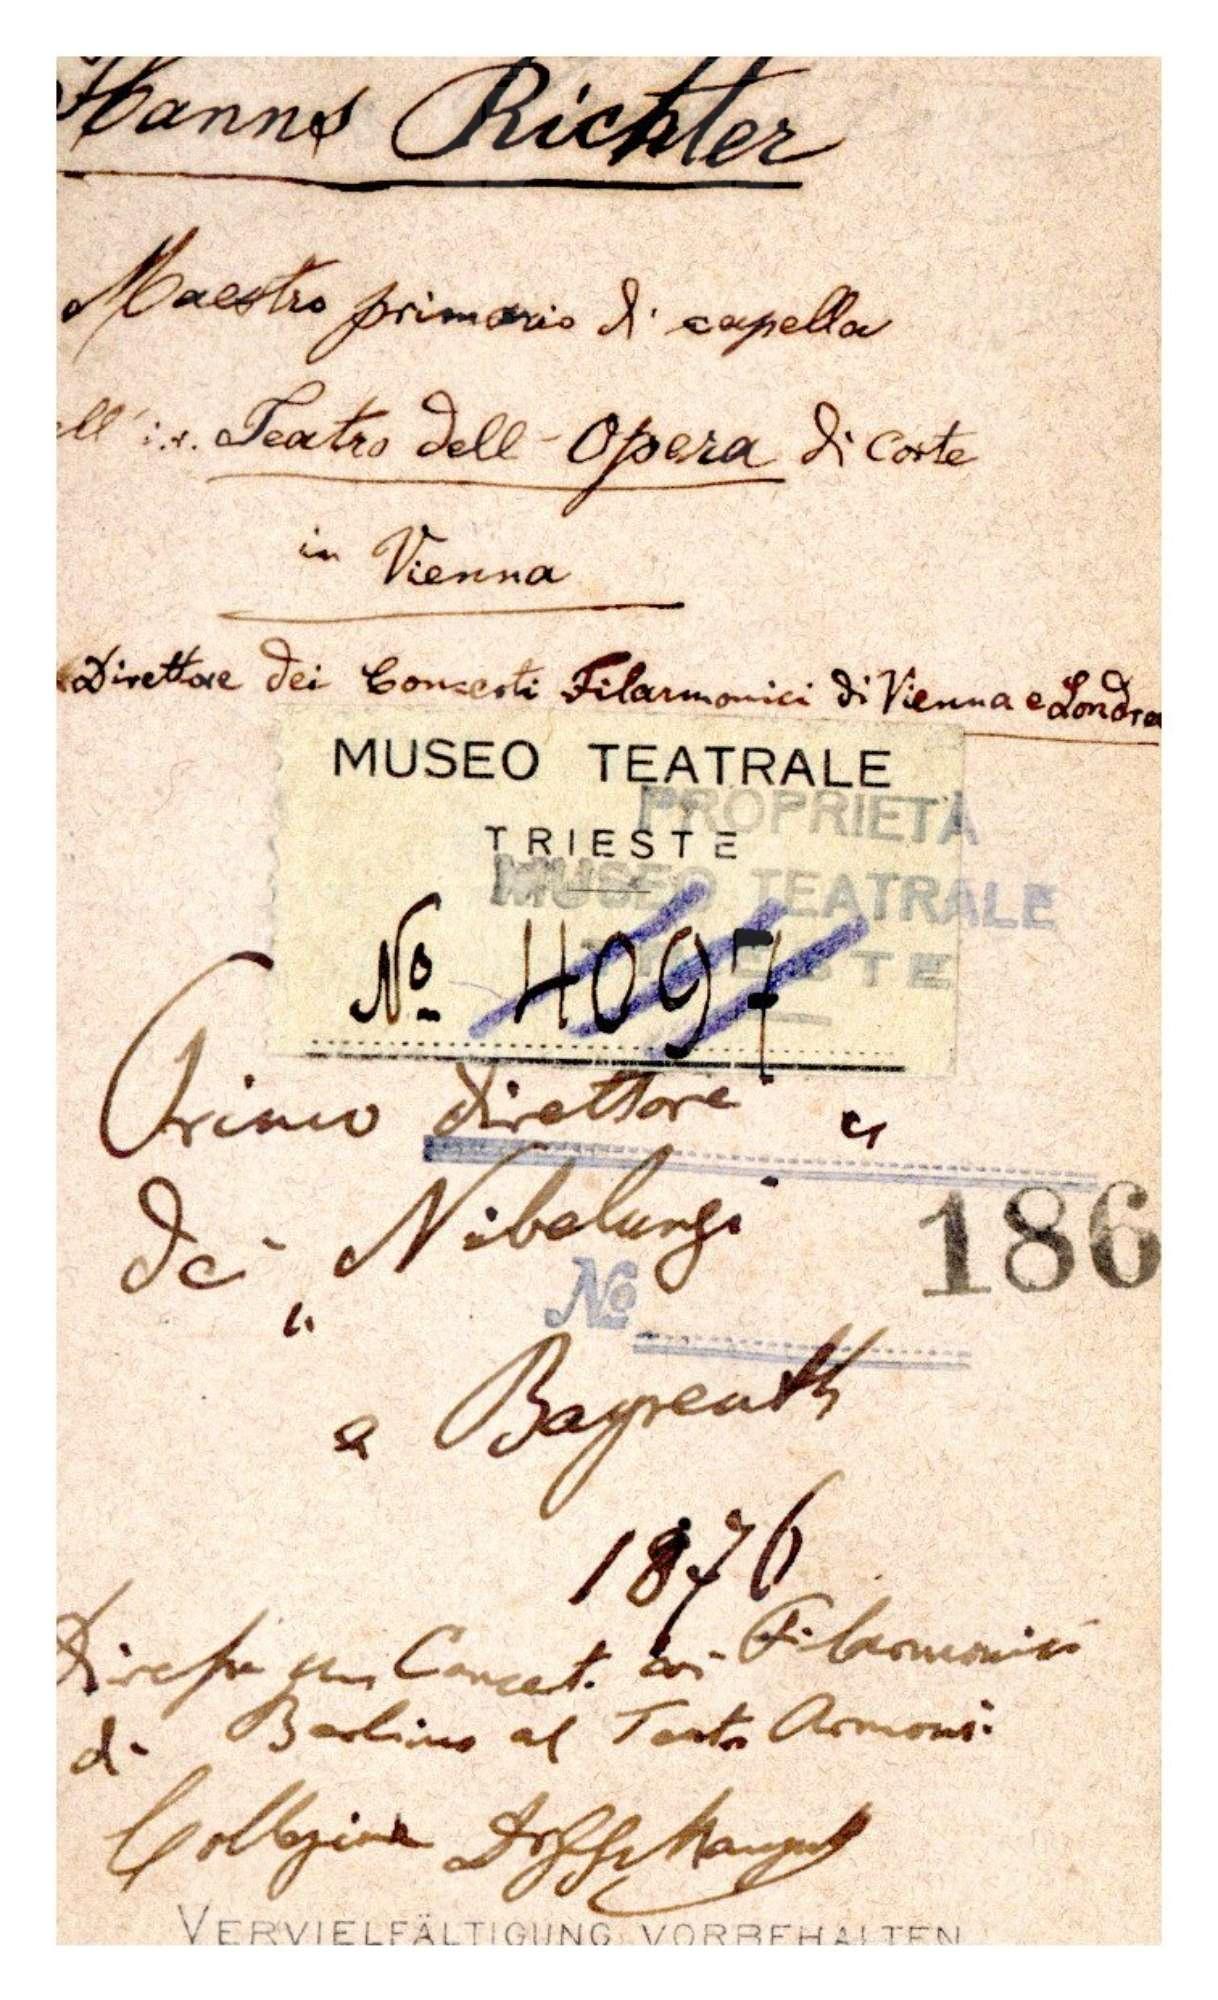 Hanns Richter
Maestro primario di capella
ell' i. r. Teatro dell' Opera di Corte
in Vienna
Direttore dei Concerti Filarmonici di Vienna e Londra
MUSEO TEATRALE
PROPRIETÀ
TRIESTE
MUSEO TEATRALE
TRIESTE
No 4097
Primo direttore
dei „Nibelungi"
186
No
a Bayreuth
1876
Diresse un Concert. coi Filarmonici
di Berlino al Teatro Armoni
Collezione
VERVIELFÄLTIGUNG VORBEHALTEN